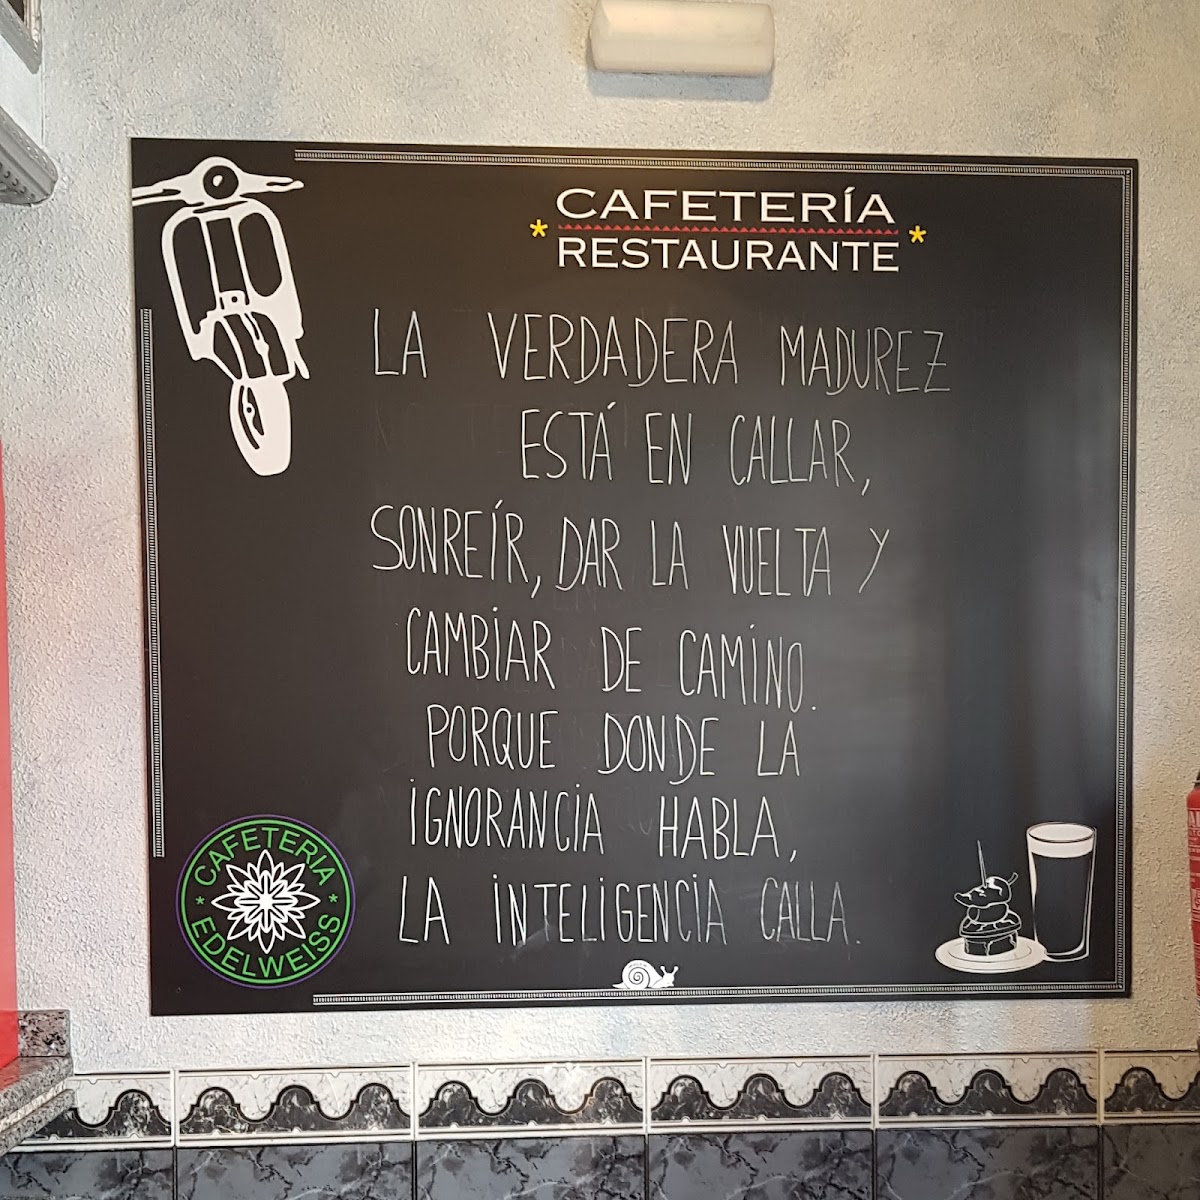 CAFETERÍA
* RESTAURANTE *
LA VERDADERA MADUREZ
ESTÁ EN CALLAR,
SONREÍR, DAR LA VUELTA Y
CAMBIAR DE CAMINO.
PORQUE DONDE LA
IGNORANCIA HABLA,
LA INTELIGENCIA CALLA.
CAFETERIA
* EDELWEISS *